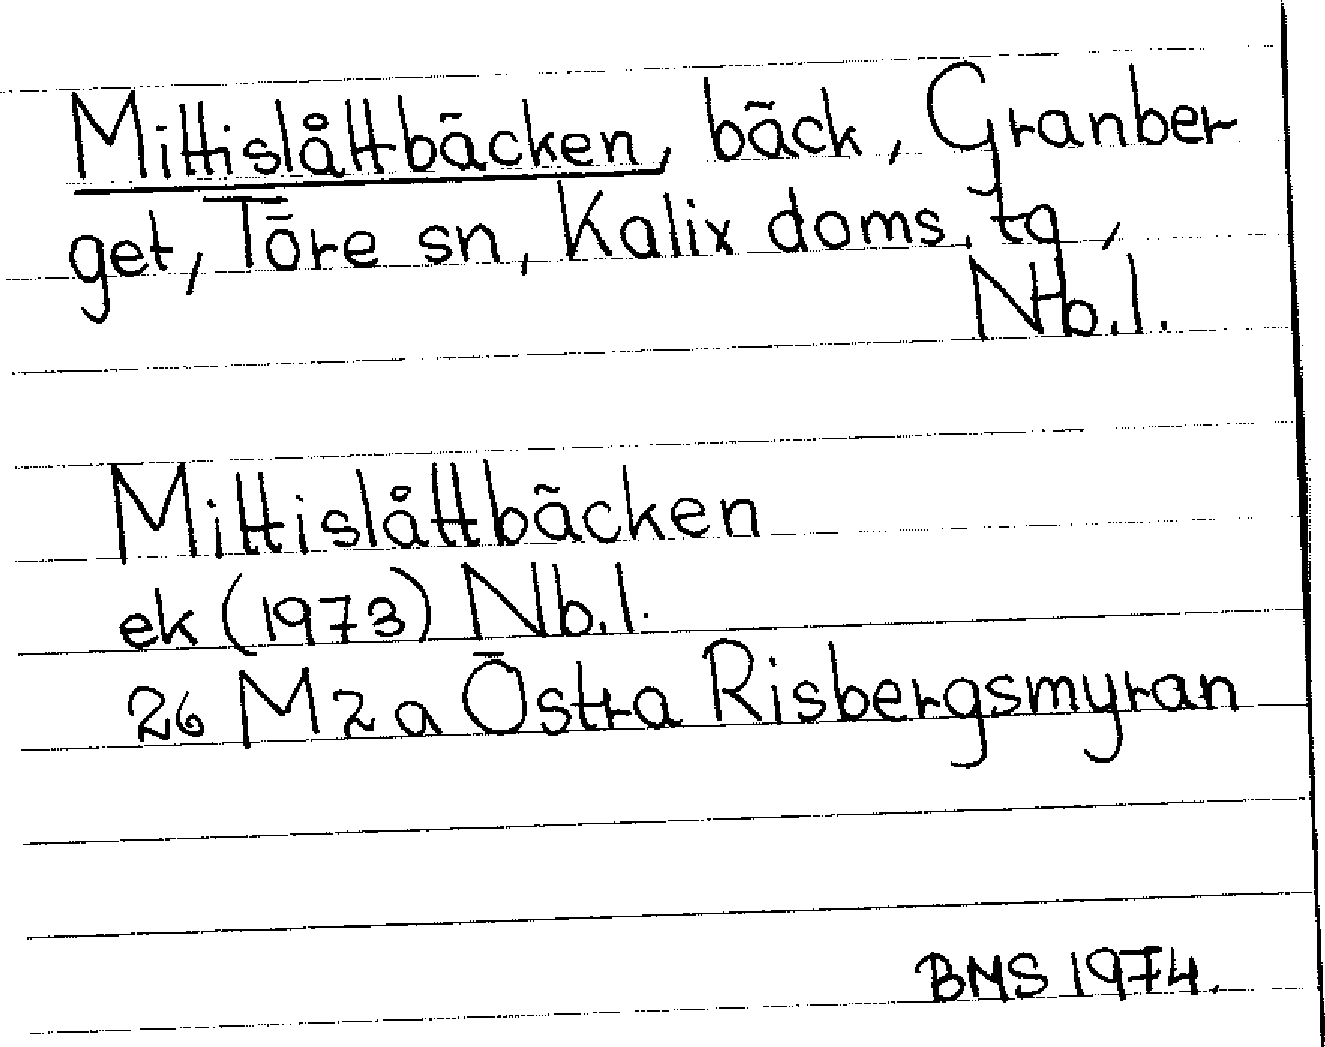 Mittislåttbäcken, bäck, Granber
get, Töre sn, Kalix doms. tg,
Nb.l.
Mittislåttbäcken
ek (1973) Nb.l.
26 M 2 a Östra Risbergsmyran
BMS 1974.